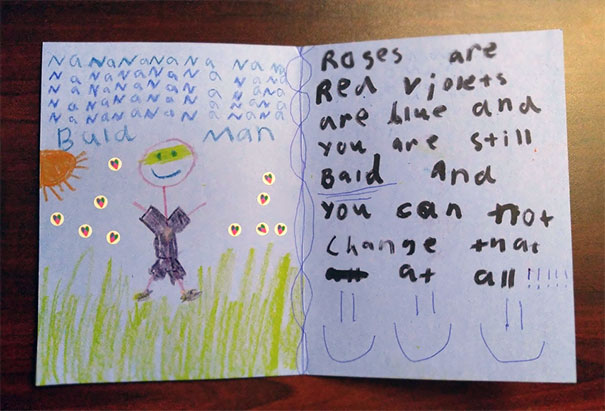 Na Na Na Na Na Na Na
Na Na Na Na Na Na Na
Na Na Na Na Na Na Na
Na Na Na Na Na Na Na
Na Na Na Na Na Na Na
Bald Man
Roses are
Red violets
are blue and
you are still
Bald And
you can not
change that
at all!!!!!